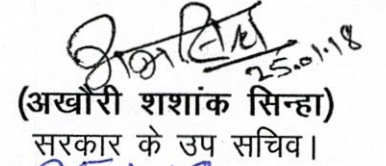 25.01.18
(अखौरी शशांक सिन्हा)
सरकार के उप सचिव।